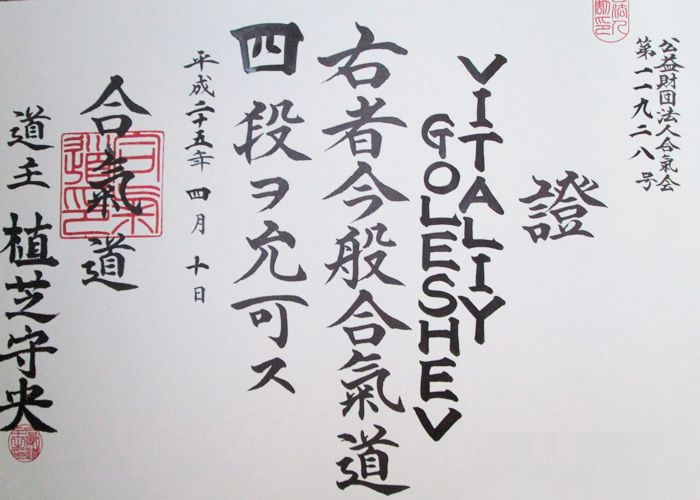 公益財団法人合氣会
第一一九二八号
證
VITALIY
GOLESHEV
右者今般合氣道
四段ヲ允可ス
平成二十五年四月十日
合氣道
道主 植芝守央